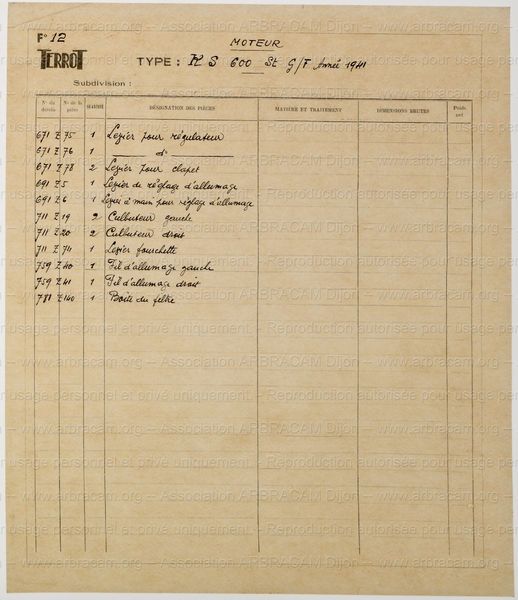 F° 12
MOTEUR
TERROT
TYPE : KS 600 St G/F Année 1941
Subdivision :
N° du dessin N° de la pièce QUANTITÉ DÉSIGNATION DES PIÈCES MATIÈRE ET TRAITEMENT DIMENSIONS BRUTES Poids net
671 Z 75 1 Levier pour régulateur
671 Z 76 1 d°
671 Z 78 2 Levier pour clapet
691 Z 5 1 Levier de réglage d'allumage
691 Z 6 1 Levier à main pour réglage d'allumage
711 Z 19 2 Culbuteur gauche
711 Z 20 2 Culbuteur droit
711 Z 74 1 Levier fourchette
759 Z 40 1 Fil d'allumage gauche
759 Z 41 1 Fil d'allumage droit
781 Z 140 1 Boite du feltre
www.arbracam.org – Association ARBRACAM Dijon – www.arbracam.org
usage personnel et privé uniquement. – Reproduction autorisée pour usage